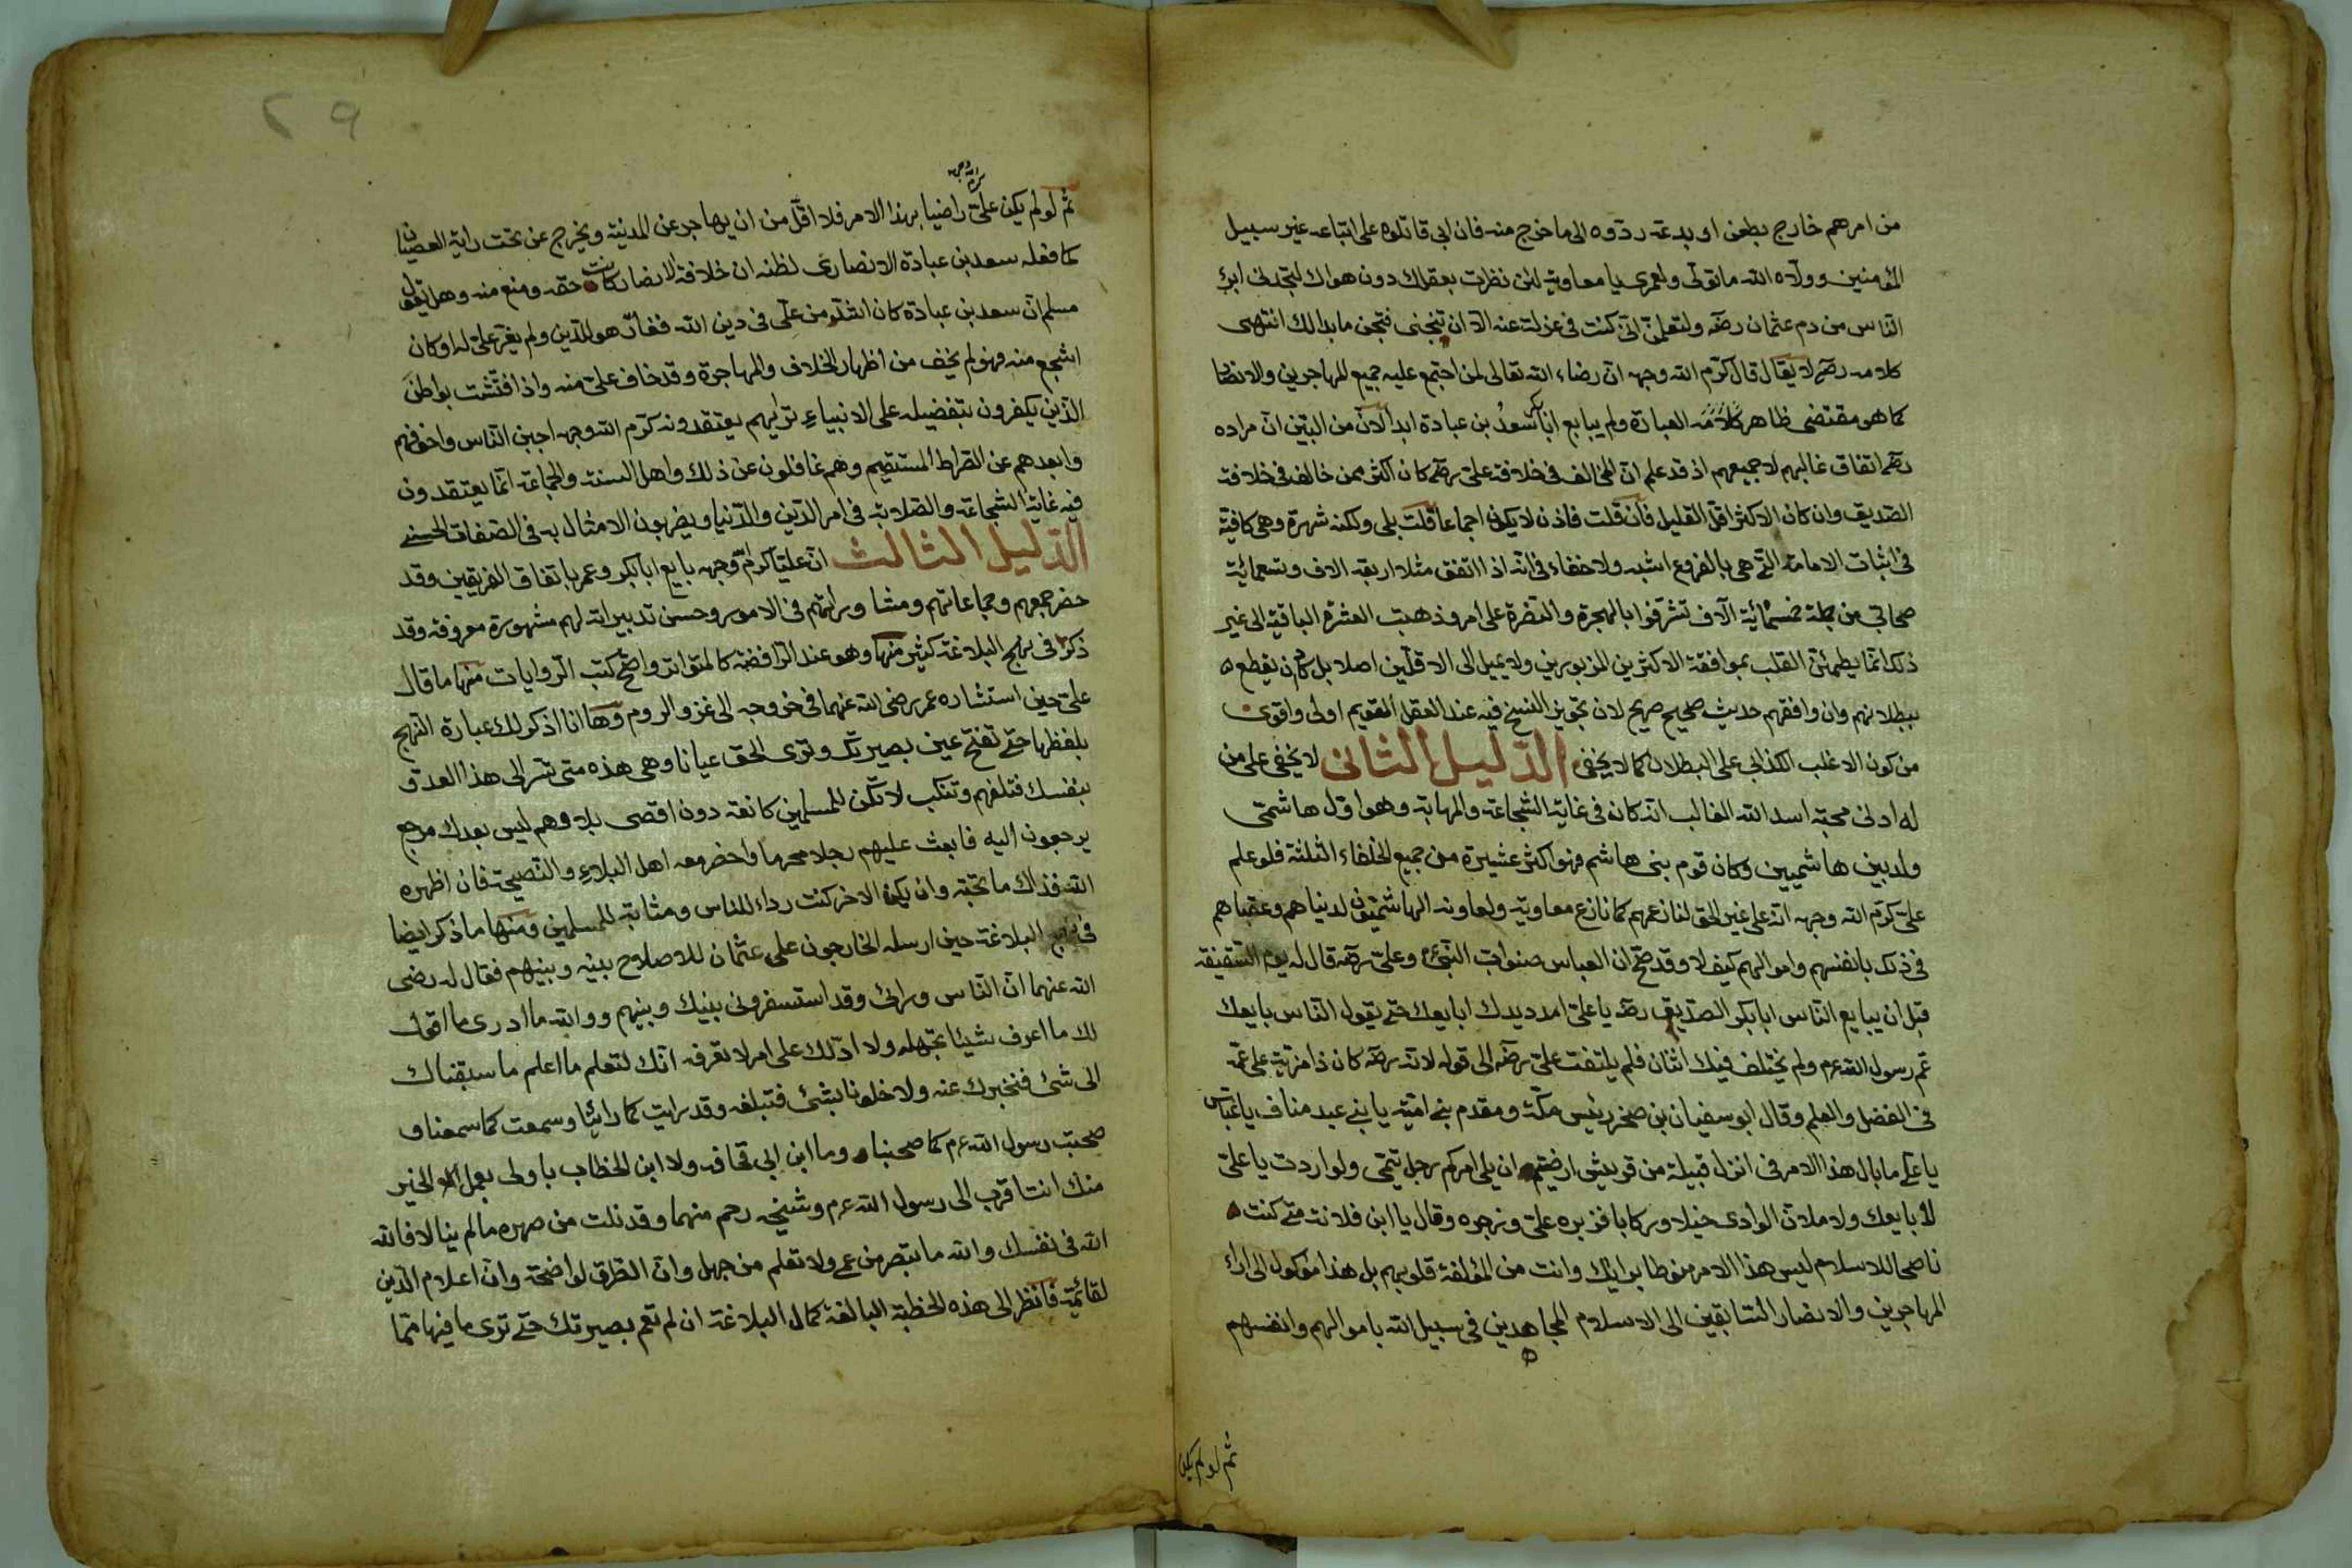 من امرهم خارج بطعن او بدعة ردّوه الى ما خرج منه فان ابى قاتلوه على اتباعه غير سبيل
المؤمنين وولّاه الله ما تولّى ولعمرى يا معاوية لئن نظرت بعقلك دون هواك لتجدنى ابرئ
الناس من دم عثمان رضه ولتعلمنّ انّى كنت فى عزلة عنه الّا ان تتجنى فتجن ما بدا لك انتهى
كلامه رضه لا يقال قال كرّم الله وجهه ان رضاء الله تعالى لمن اجتمع عليه جميع المهاجرين والانصار
كما هو مقتضى ظاهر كلامه العبارة ولم يبايع ابا بكر سعدُ بن عبادة ابدا لانّ من البيّن انّ مراده
رضه اتفاق غالبهم لا جميعهم اذ قد علم انّ المخالف فى خلافة علىّ رضه كان اكثر ممن خالف فى خلافة
الصديق وان كان الاكثر اقل القليل فان قلت فاذن لا يكون اجماعا قلت بلى ولكنه شهرة وهى كافية
فى اثبات الامامة التى هى بالفروع اشبه ولا خفاء فى انه اذا اتفق مثلا اربعة الاف وتسعمائة
صحابى من جملة خمسمائة آلاف تشرّفوا بالهجرة والنصرة على امر وذهبت العشرة الباقية الى غير
ذلك انما يطمئنّ القلب بموافقة الاكثرين المزبورين ولا يميل الى الاقلّين اصلا بل كان يقطع
ببطلانهم وان وافقهم حديث صحيح صريح لان تجويز النسخ فيه عند العقل القويم اولى واقوى
من كون الاغلب الكذائى على البطلان كما لا يخفى الدّليل الثانى لا يخفى على من
له ادنى محبة اسد الله الغالب انّه كان فى غاية الشجاعة والمهابة وهو اوّل هاشمىّ
ولد بين هاشميين وكان قوم بنى هاشم فهو اكثر عشيرة من جميع الخلفاء الثلثة فلو علم
علىّ كرّم الله وجهه انّه على غير الحق لنازعهم كما نازع معاوية ولعاونه الهاشميّون لدنياهم وعقباهم
فى ذلك بانفسهم واموالهم كيف لا وقد صحّ ان العباس صنو اب النبىّ وعلىّ رضه قال له يوم السّقيفة
قبل ان يبايع النّاس ابا بكر الصدّيق رضه يا علىّ امدد يدك ابايعك حتى يقول النّاس بايعك
عمّ رسول الله عرم ولم يختلف فيك اثنان فلم يلتفت علىّ رضه الى قوله لانه رضه كان ذا مزية على عمّه
فى الفضل والعلم وقال ابو سفيان بن صخر رئيس مكّة ومقدم بنى اميّة يا بنى عبد مناف يا عبّاس
يا على ما بال هذا الامر فى انزل قبيلة من قريش ارضيتم ان يلى امركم رجل تيمى ولو اردت يا علىّ
لأبايعك ولاملانّ الوادى خيلا وركابا فزبره علىّ وزجره وقال يا ابن فلانة متى كنت
ناصحا للاسلام ليس هذا الامر منوطا برايك وانت من المؤلفة قلوبهم بل هذا موكول الى اراء
المهاجرين والانصار السّابقين الى الاسلام المجاهدين فى سبيل الله باموالهم وانفسهم
ثم لو لم يكن
٢٩
كرم الله وجهه
ثم لو لم يكن علىّ راضيا بهذا الامر فلا اقلّ من ان يهاجر عن المدينة ويخرج عن تحت راية العصيان
كما فعله سعد بن عبادة الانصارى لظنه ان خلافة الانصار كانت حقه ومنع منه وهل يقول
مسلم انّ سعد بن عبادة كان اشدّ من علىّ فى دين الله فغار هو للدّين ولم يغر علىّ له او كان
اشجع منه فهو لم يخف من اظهار الخلاف والمهاجرة وقد خاف علىّ منه واذا فتّشت بواطن
الّذين يكفرون بتفضيله على الانبياء تريهم يعتقدونه كرّم الله وجهه اجبن النّاس واخوفهم
وابعدهم عن الصّراط المستقيم وهم غافلون عن ذلك واهل السنة والجماعة انّما يعتقدون
فيه غاية الشجاعة والصّلابة فى امر الدّين والدّنيا ويضربون الامثال به فى الصّفات الحسنى
الدّليل الثالث انّ عليّا كرّم وجهه بايع ابا بكر وعمر باتفاق الفريقين وقد
حضر جمعهم وجماعاتهم ومشاوراتهم فى الامور وحسن تدبيراته لهم مشهورة معروفة وقد
ذكر فى نهج البلاغة كثير منها وهو عند الرّافضة كالمتواتر واصحّ كتب الرّوايات منها ما قال
علىّ حين استشاره عمر رضى الله عنهما فى خروجه الى غزو الروم وها انا اذكر لك عبارة النّهج
بلفظها حتى تفتح عين بصيرتك وترى الحق عيانا وهى هذه متى تسر الى هذا العدوّ
بنفسك فتلقهم وتنكب لا تكن للمسلمين كانفة دون اقصى بلادهم ليس بعدك مرجع
يرجعون اليه فابعث عليهم رجلا محربا واحضر معه اهل البلاء والنّصيحة فان اظهره
الله فذاك ما تحبّه وان يكن الاخر كنت رداء للناس ومثابة للمسلمين ومنها ما ذكر ايضا
فى نهج البلاغة حين ارسله الخارجون على عثمان للاصلاح بينه وبينهم فقال له رضى
الله عنهما انّ النّاس ورائى وقد استسفرونى بينك وبينهم ووالله ما ادرى ما اقول
لك ما اعرف شيئا تجهله ولا ادلّك على امر لا تعرفه انّك لتعلم ما اعلم ما سبقناك
الى شئ فنخبرك عنه ولا خلونا بشئ فنبلغه وقد رايت كما راينا وسمعت كما سمعنا و
صحبت رسول الله عرم كما صحبنا وما ابن ابى قحافة ولا ابن الخطاب باولى بعمل الخير
منك انت اقرب الى رسول الله عرم وشيجة رحم منهما وقد نلت من صهره ما لم ينالا فالله
الله فى نفسك والله ما تبصر من عمى ولا تعلم من جهل وانّ الطرق لواضحة وانّ اعلام الدّين
لقائمة فانظر الى هذه الخطبة البالغة كمال البلاغة ان لم تعم بصيرتك حتى ترى ما فيها ممّا